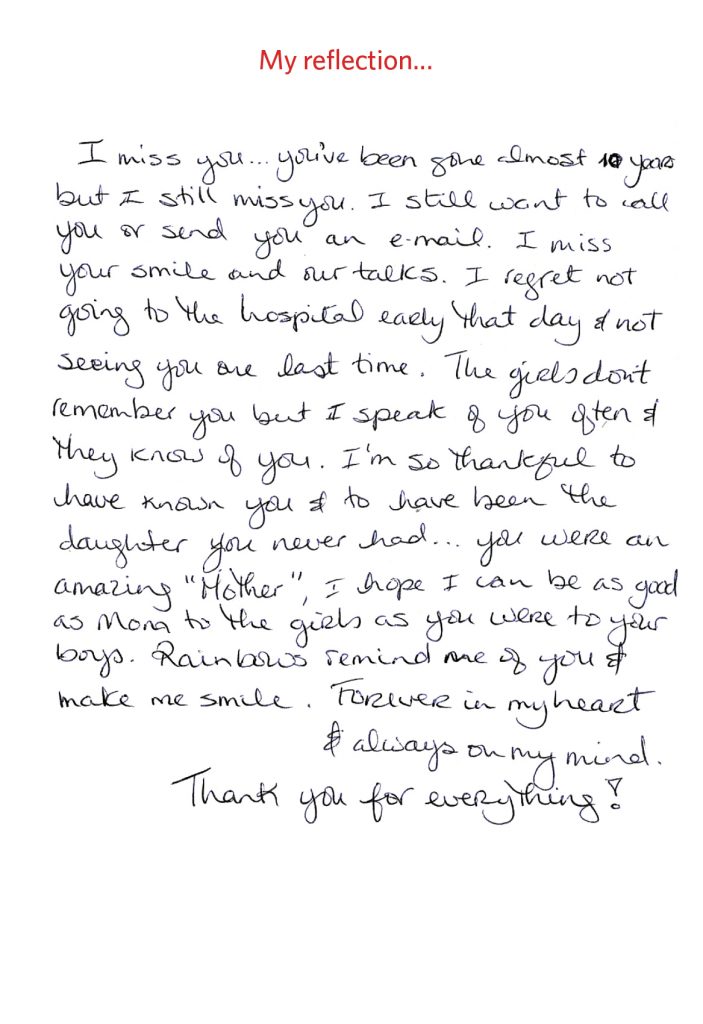 My reflection...
I miss you... you've been gone almost 10 years
but I still miss you. I still want to call
you or send you an e-mail. I miss
your smile and our talks. I regret not
going to the hospital early that day & not
seeing you one last time. The girls don't
remember you but I speak of you often &
they know of you. I'm so thankful to
have known you & to have been the
daughter you never had... you were an
amazing "Mother", I hope I can be as good
as Mom to the girls as you were to your
boys. Rainbows remind me of you &
make me smile. Forever in my heart
& always on my mind.
Thank you for everything!